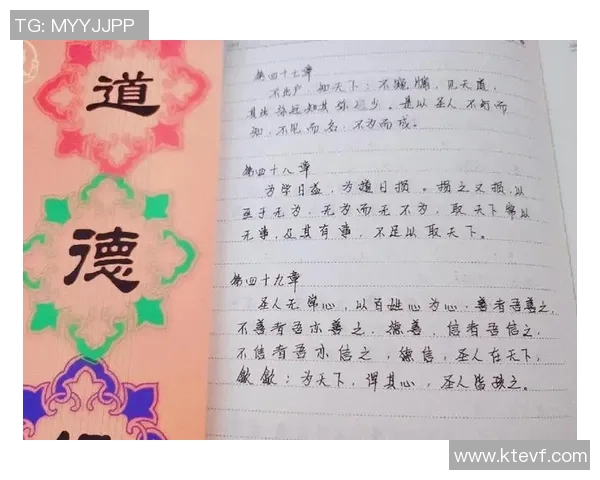 TG: MYYJJPP
道
德
第四十七章
不出户，知天下；不窥牖，见天道，
其出弥远知其弥少。是以圣人不行而
知，不见而名，不为而成。
第四十八章
为学日益，为道日损。损之又损，以
至于无为，无为而无不为，取天下常以
无事，及其有事，不足以取天下。
第四十九章
圣人无常心，以百姓心为心，善者吾善之，
不善者吾亦善之，德善，信者吾信之，
不信者吾亦信之，德信，圣人在天下，
歙歙；为天下，浑其心，圣人皆孩之。
www.ktevf.com